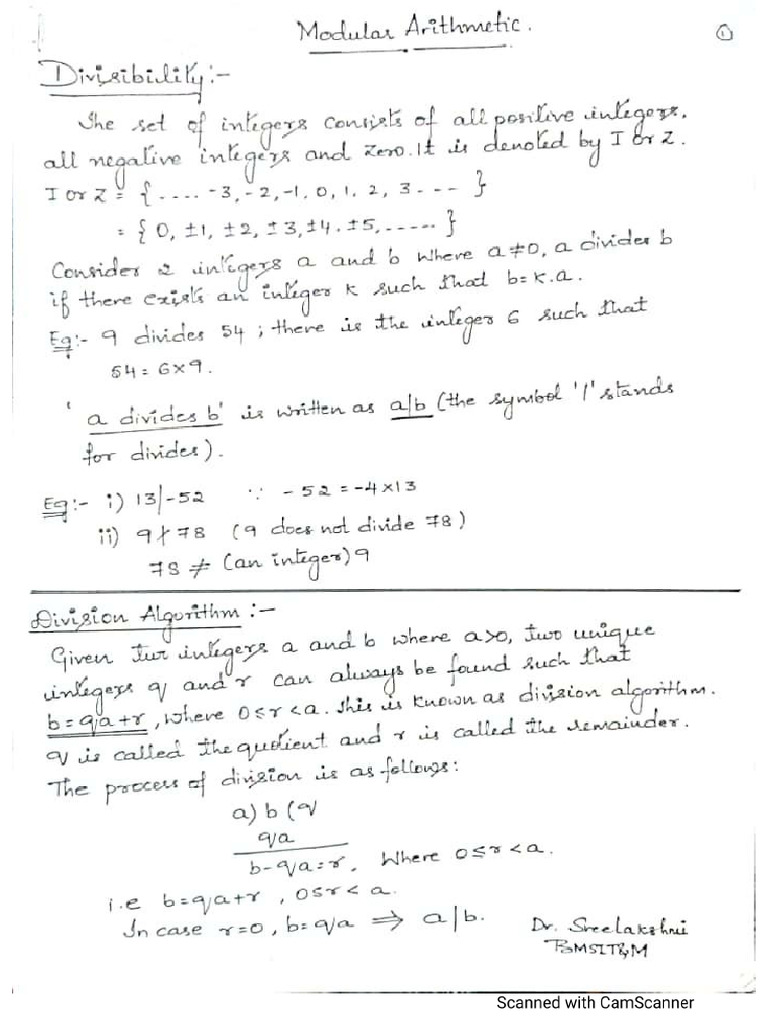 Modular Arithmetic.
1
Divisibility:-
The set of integers consists of all positive integers.
all negative integers and zero. It is denoted by I or Z.
I or Z = { .... -3, -2, -1, 0, 1, 2, 3 - - - }
= { 0, ±1, ±2, ±3, ±4. ±5, ...... }
Consider 2 integers a and b where a≠0, a divides b
if there exists an integer k such that b= k.a.
Eg:- 9 divides 54 ; there is the integer 6 such that
54 = 6×9.
'a divides b' is written as a|b (the symbol '|' stands
for divides).
Eg:- i) 13|-52 ∵ -52 = -4×13
ii) 9∤78 (9 does not divide 78)
78 ≠ (an integer) 9
Division Algorithm :-
Given two integers a and b where a>0, two unique
integers q and r can always be found such that
b=qa+r, where 0≤r<a. This is known as division algorithm.
q is called the quotient and r is called the remainder.
The process of division is as follows:
a) b (q
qa
b-qa=r, Where 0≤r<a.
i.e b=qa+r , 0≤r<a.
In case r=0, b=qa ⇒ a|b.
Dr. Sreelakshmi
BMSIT&M
Scanned with CamScanner